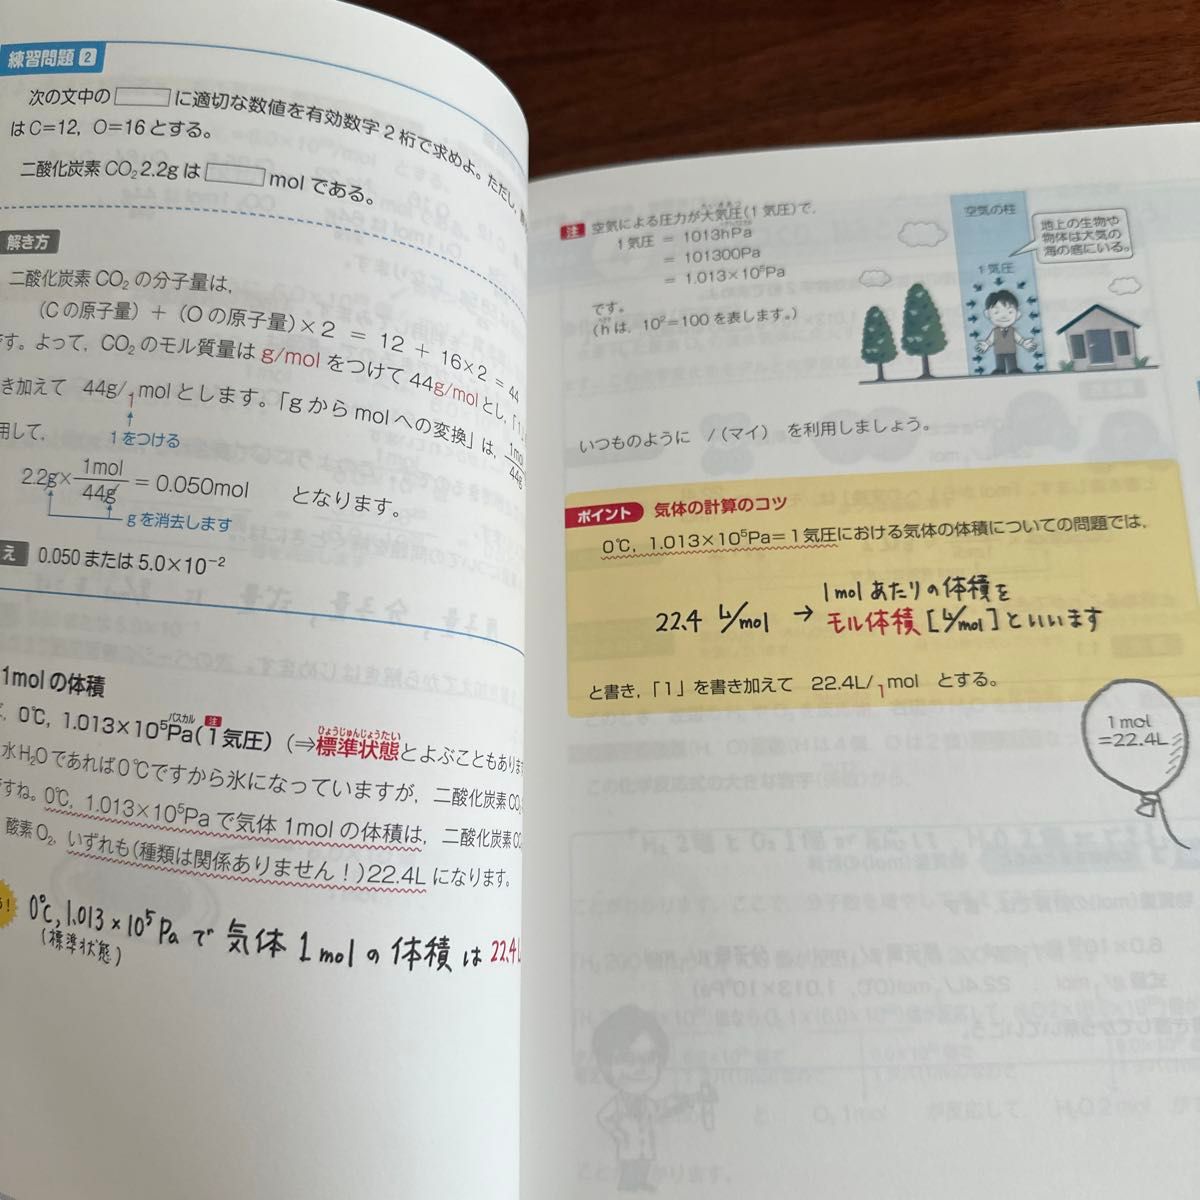 練習問題 2
次の文中の に適切な数値を有効数字2桁で求めよ。ただし,
はC=12, O=16とする。
二酸化炭素 CO₂ 2.2gは molである。
解き方
二酸化炭素 CO₂ の分子量は,
(Cの原子量) + (Oの原子量)×2 = 12 + 16×2 = 44
です。よって, CO₂ のモル質量は g/mol をつけて 44g/mol とし,「1」
き加えて 44g/1 mol とします。「gからmolへの変換」は, 1mol/44g
用して,
1をつける
2.2g× 1mol/44g = 0.050mol となります。
gを消去します
え 0.050 または 5.0×10⁻²
1molの体積
0℃, 1.013×10⁵Pa(1気圧) (⇒標準状態とよぶこともあります
パスカル 注 ひょうじゅんじょうたい
水H₂Oであれば0℃ですから氷になっていますが, 二酸化炭素CO₂
ですね。0℃, 1.013×10⁵Paで気体1molの体積は, 二酸化炭素CO₂
酸素O₂, いずれも(種類は関係ありません!)22.4Lになります。
0℃, 1.013×10⁵Paで気体1molの体積は22.4L
(標準状態)
注 空気による圧力が大気圧(1気圧)で,
1気圧 = 1013hPa
= 101300Pa
= 1.013×10⁵Pa
です。
(hは, 10²=100を表します。)
空気の柱
地上の生物や
物体は大気の
海の底にいる。
1気圧
いつものように /(マイ) を利用しましょう。
ポイント 気体の計算のコツ
0℃, 1.013×10⁵Pa=1気圧における気体の体積についての問題では,
22.4 L/mol → 1molあたりの体積を
モル体積[L/mol]といいます
と書き,「1」を書き加えて 22.4L/1 mol とする。
1mol
=22.4L